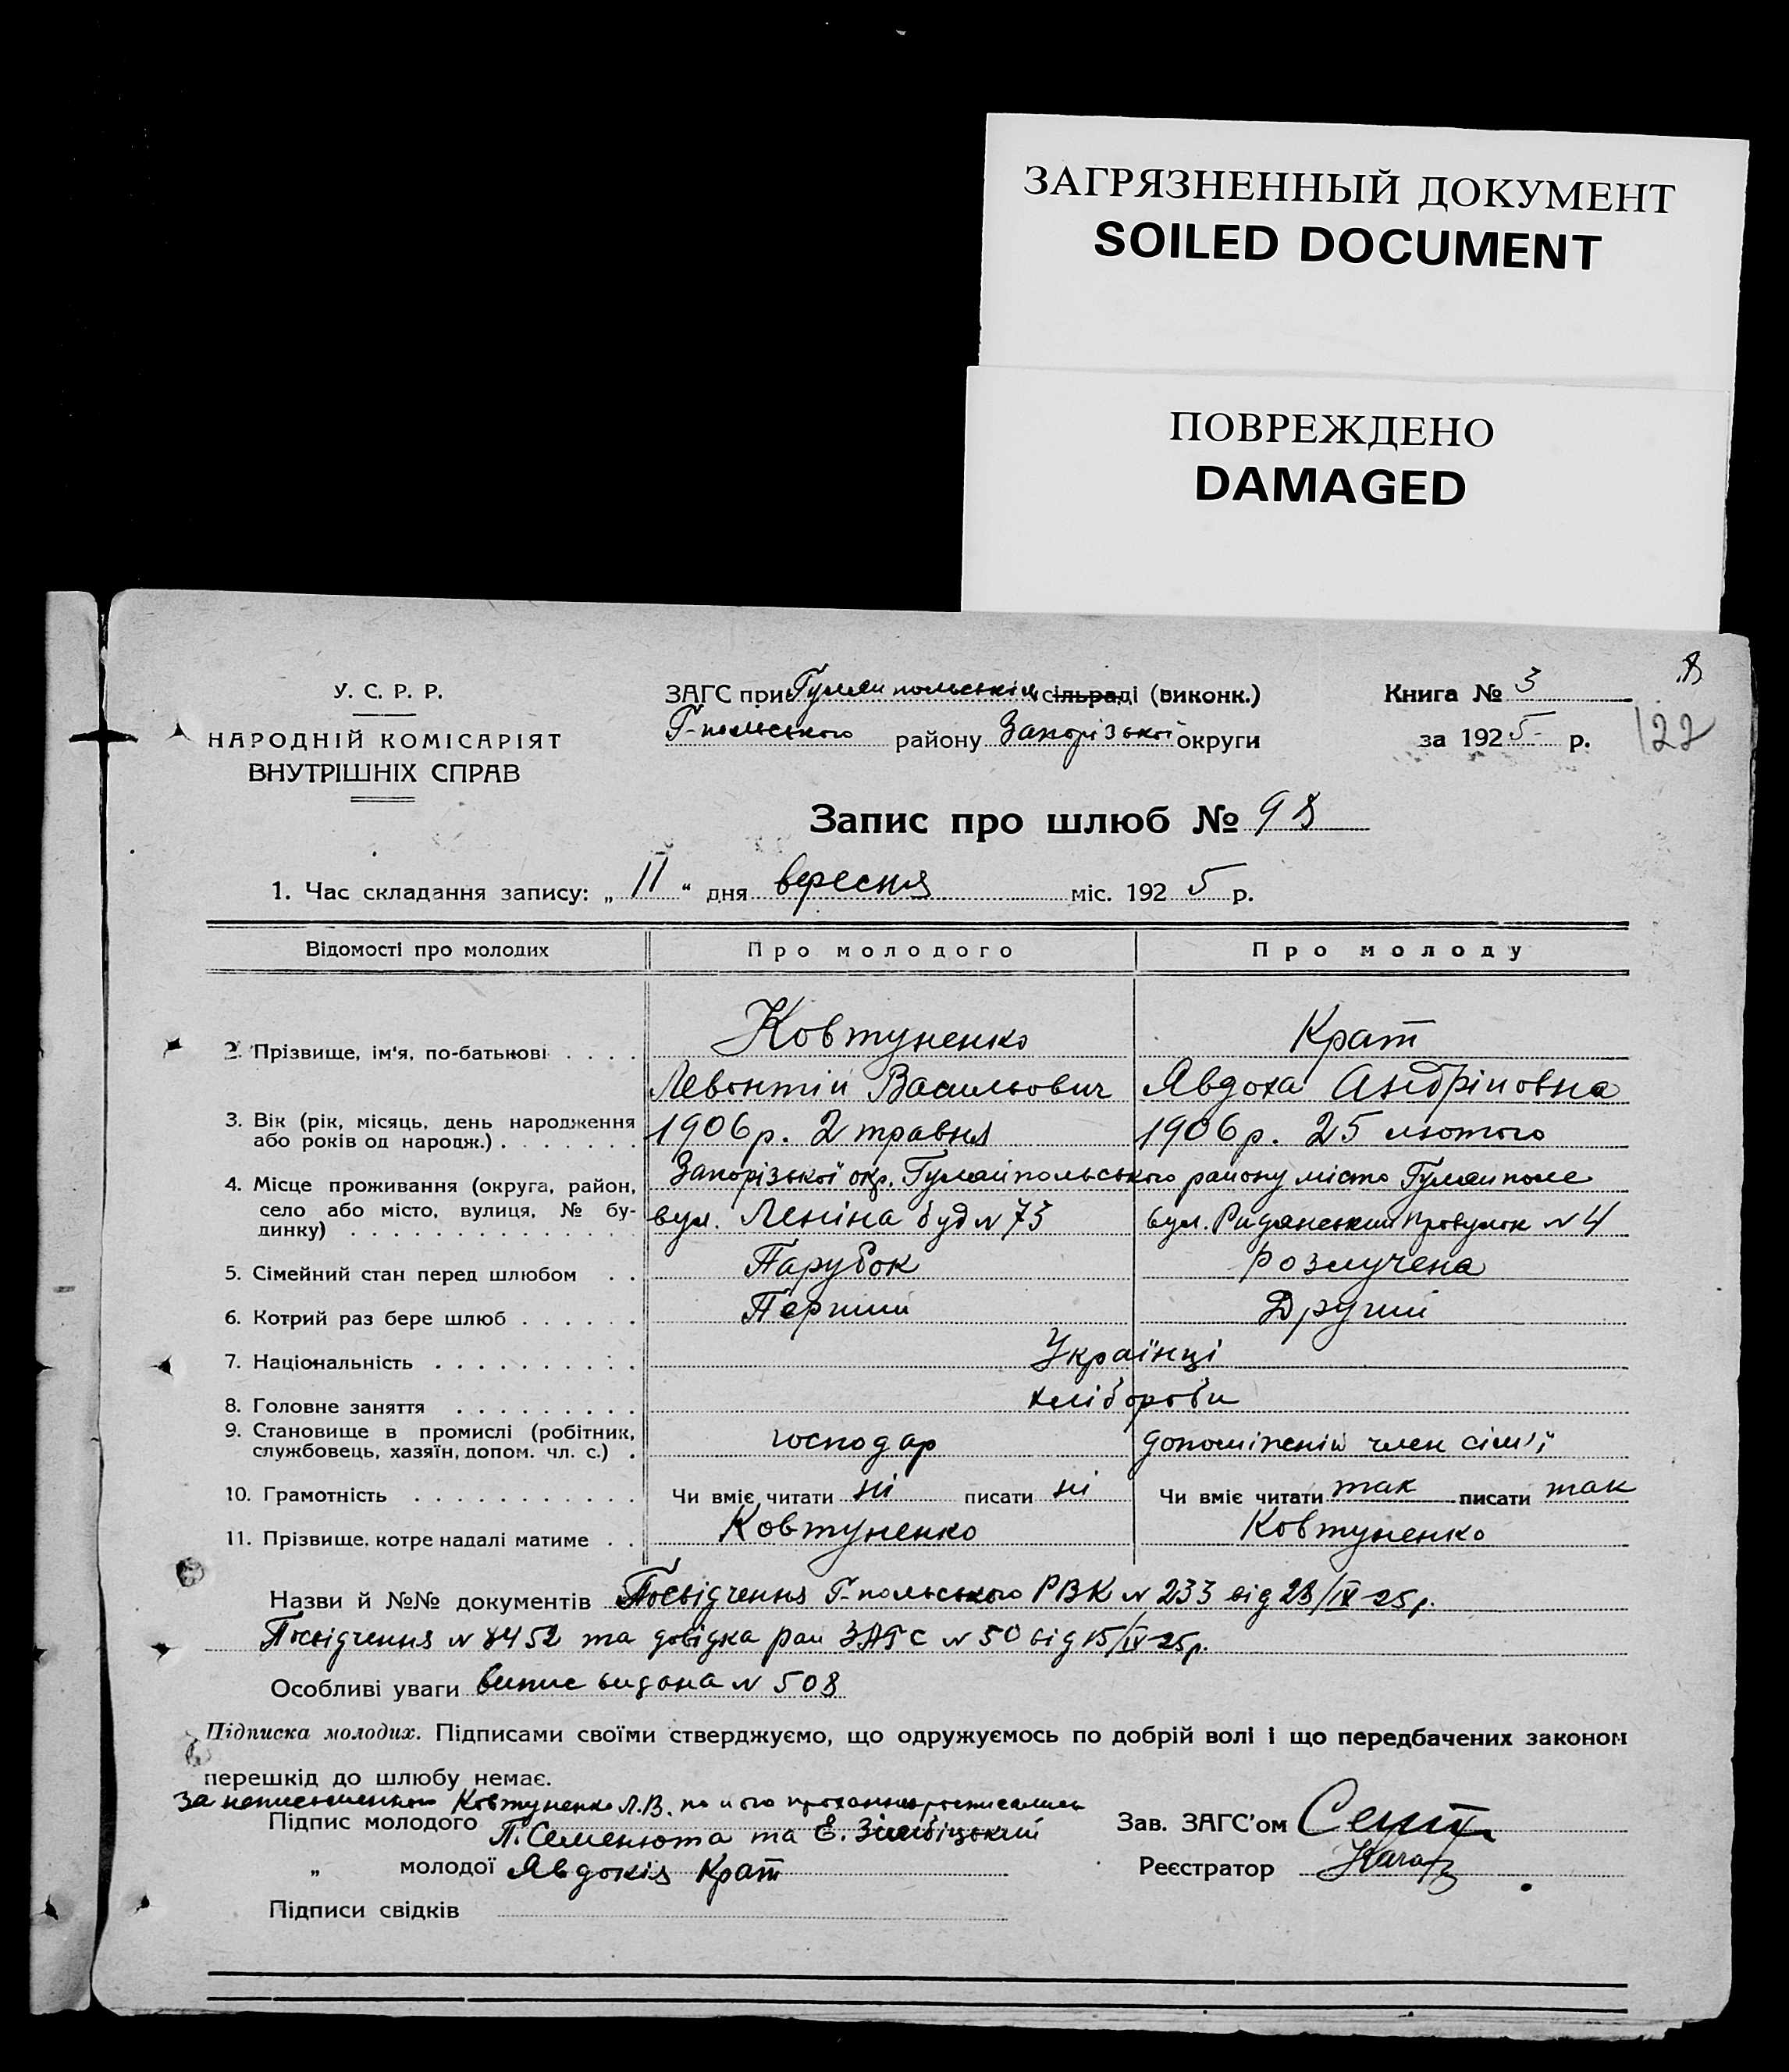 ЗАГРЯЗНЕННЫЙ ДОКУМЕНТ
SOILED DOCUMENT
ПОВРЕЖДЕНО
DAMAGED
У. С. Р. Р.
НАРОДНІЙ КОМІСАРІЯТ
ВНУТРІШНІХ СПРАВ
ЗАГС при Гуляйпольськім сільраді (виконк.)
Г-польського району Запорізької округи
Книга № 3
за 1925 р.
122
Запис про шлюб № 98
1. Час складання запису: „ 11 “ дня вересня міс. 1925 р.
Відомості про молодих Про молодого Про молоду
Ковтуненко Крат
2. Прізвище, ім'я, по-батькові
Левонтій Васильович Явдоха Андріповна
3. Вік (рік, місяць, день народження 1906 р. 2 травня 1906 р. 25 лютого
або років од народж.)
Запорізької окр. Гуляйпольського району місто Гуляйполе
4. Місце проживання (округа, район,
село або місто, вулиця, № бу- вул. Леніна буд № 73 вул. провулок № 4
динку)
5. Сімейний стан перед шлюбом Парубок Розлучена
6. Котрий раз бере шлюб Перший Другий
7. Національність Українці
8. Головне заняття хлібороби
9. Становище в промислі (робітник, господар член сім'ї
службовець, хазяїн, допом. чл. с.)
10. Грамотність Чи вміє читати ні писати ні Чи вміє читати так писати так
11. Прізвище, котре надалі матиме Ковтуненко Ковтуненко
Назви й №№ документів Посвідчення Г-польського РВК № 233 від 28/IX-25 р.
Посвідчення № 8452 та довідка рай ЗАГС № 50 від 15/IX-25 р.
Особливі уваги випис видана № 508
Підписка молодих. Підписами своїми стверджуємо, що одружуємось по добрій волі і що передбачених законом
перешкід до шлюбу немає.
за неписьменного Ковтуненко Л.В. по його проханню росписались
Підпис молодого П. Семенюта та Е.
„ молодої Явдокія Крат
Підписи свідків
Зав. ЗАГС'ом
Реєстратор